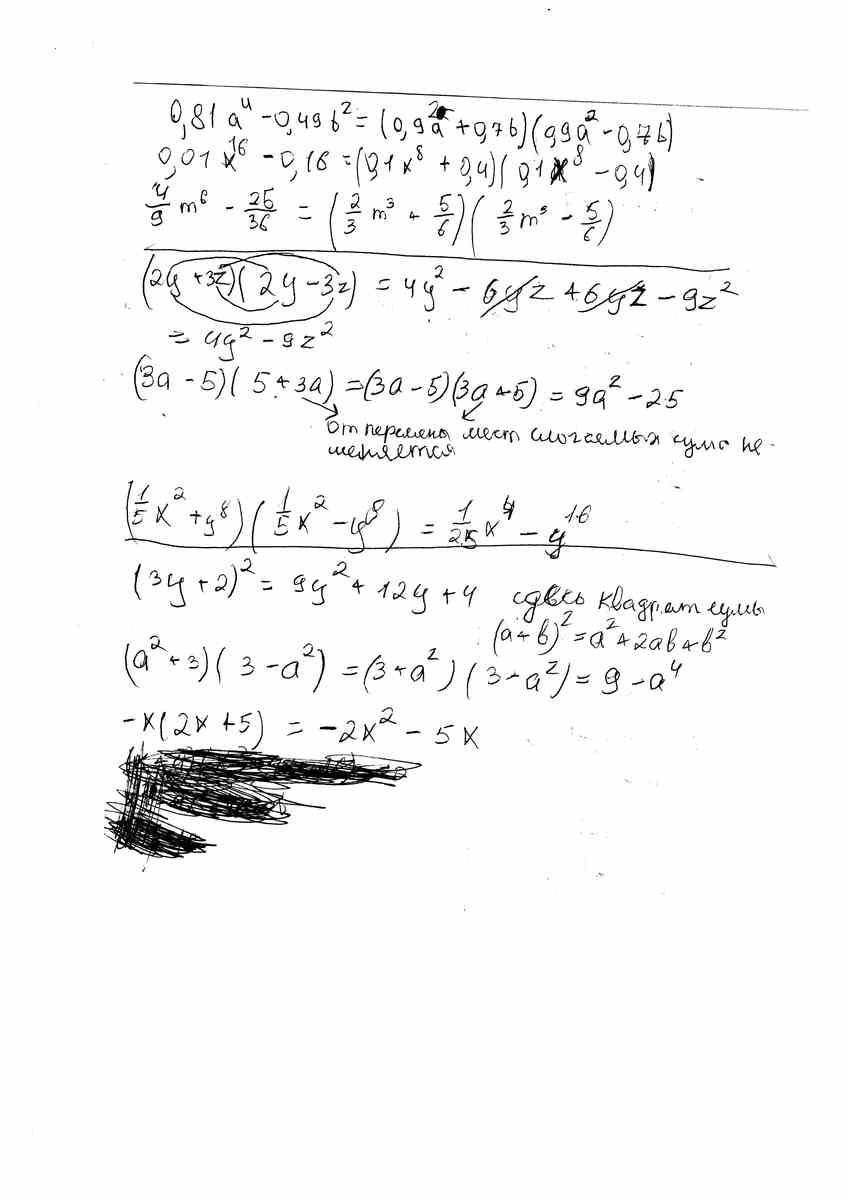 0,81a⁴ - 0,49b² = (0,9a² + 0,7b)(0,9a² - 0,7b)
0,01x¹⁶ - 0,16 = (0,1x⁸ + 0,4)(0,1x⁸ - 0,4)
4/9 m⁶ - 25/36 = (2/3 m³ + 5/6)(2/3 m³ - 5/6)
(2y + 3z)(2y - 3z) = 4y² - 6yz + 6yz - 9z²
= 4y² - 9z²
(3a - 5)(5 + 3a) = (3a - 5)(3a + 5) = 9a² - 25
От перемены мест слогаемых сума не
меняется
(1/5 x² + y⁸)(1/5 x² - y⁸) = 1/25 x⁴ - y¹⁶
(3y + 2)² = 9y² + 12y + 4 сдесь квадрат сумы
(a + b)² = a² + 2ab + b²
(a² + 3)(3 - a²) = (3 + a²)(3 - a²) = 9 - a⁴
-x(2x + 5) = -2x² - 5x